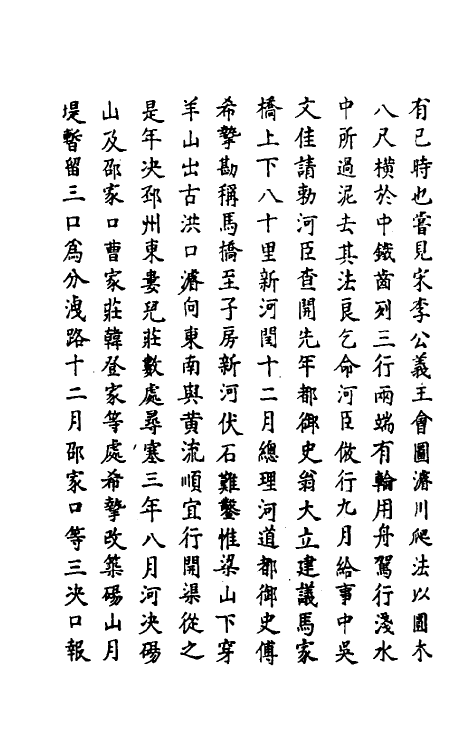 有已時也嘗見宋李公義王會圖濬川爬法以圓木
八尺橫於中鐵齒列三行兩端有輪用舟駕行淺水
中所過泥去其法良乞命河臣倣行九月給事中吳
文佳請勅河臣查開先年都御史翁大立建議馬家
橋上下八十里新河閏十二月總理河道都御史傅
希摯勘稱馬橋至子房新河伏石難鑿惟梁山下穿
羊山出古洪口濬向東南與黃流順宜行開渠從之
是年决邳州東婁兒莊數處尋塞三年八月河决碭
山及邵家口曹家莊韓登家等處希摯改築碭山月
堤暫留三口爲分洩路十二月邵家口等三决口報